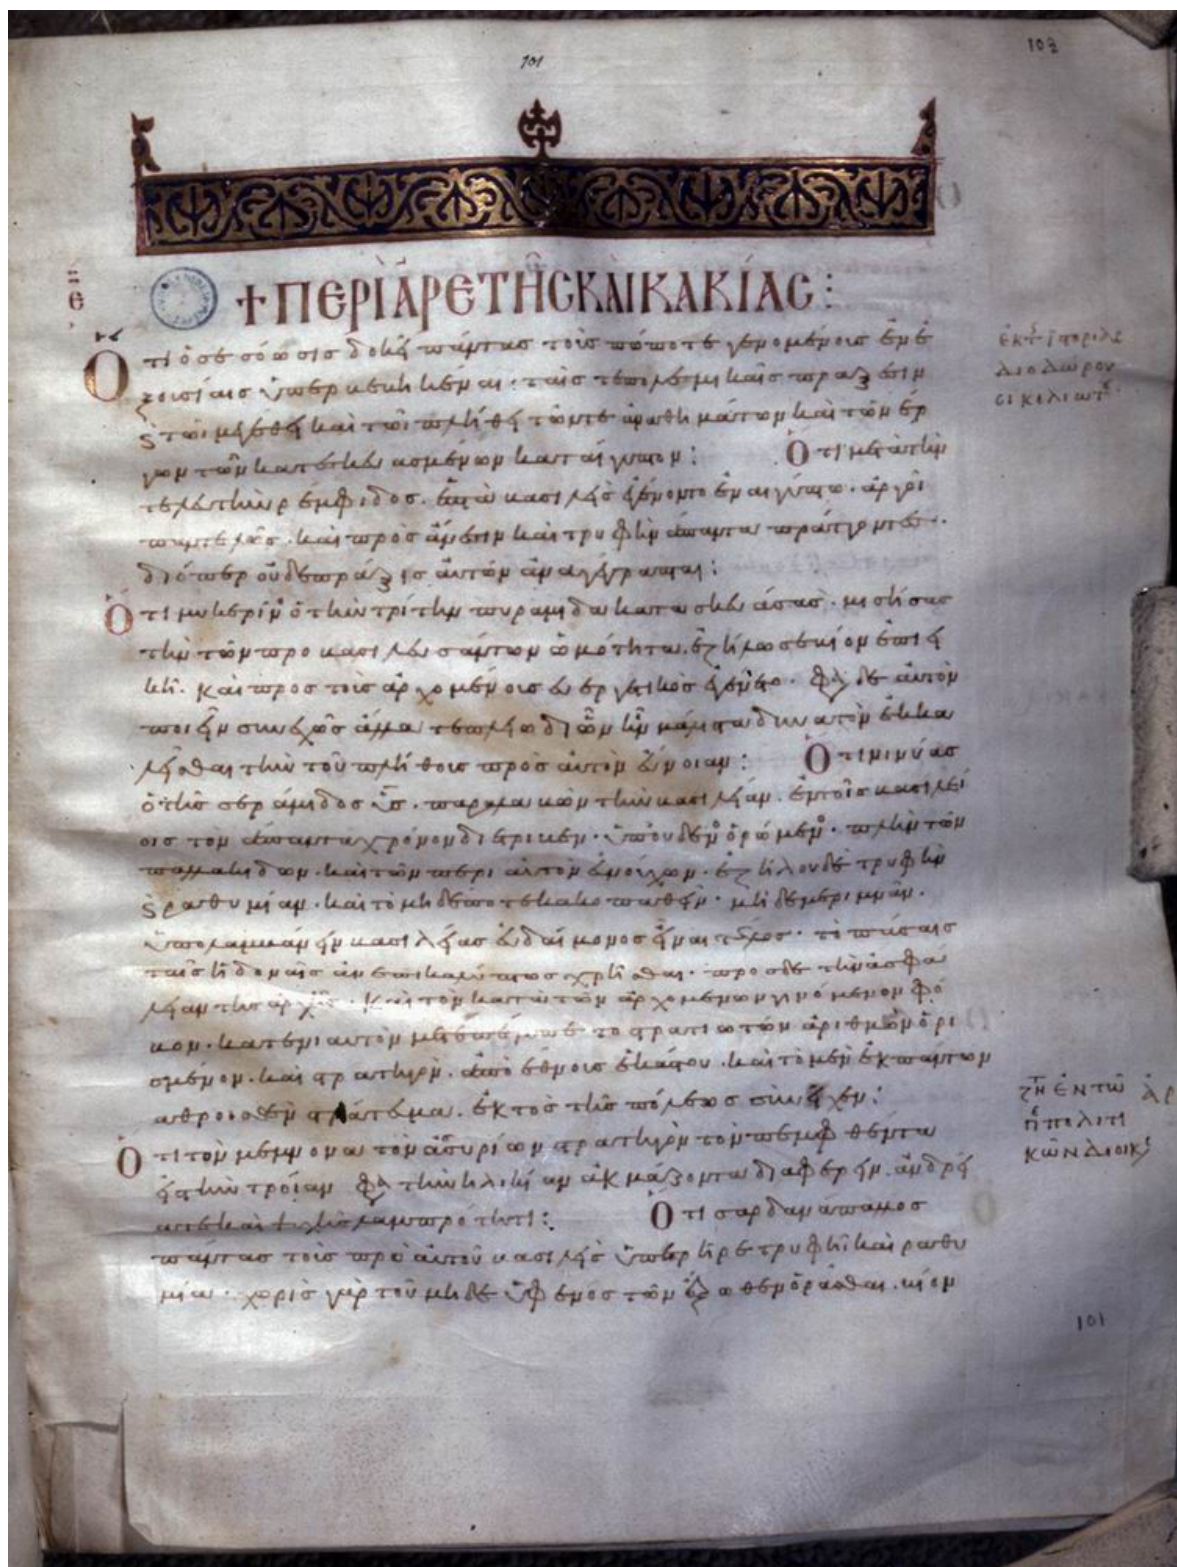 101
103
+ ΠΕΡῚ ἈΡΕΤΗ͂Σ ΚΑῚ ΚΑΚΊΑΣ:
Ὅτι ὁ σεσόωσις δοκεῖ πάντας τοὺς πώποτε γενομένους ἐν ἐ
ξουσίαις ὑπερβεβηκέναι· ταῖς τε πολεμικαῖς πράξεσιν
ϗ τῶι μεγέθει καὶ τῶι πλήθει τῶν τε ἀναθημάτων καὶ τῶν ἔρ
γων τῶν κατεσκευασμένων κατ' αἴγυπτον: Ὅτι μετὰ τὴν
τελευτὴν ῥέμφιδος. ἑπτὰ βασιλεῖς ἐγένοντο ἐν αἰγύπτω. ἀργοὶ
παντελῶς. καὶ πρὸς ἄνεσιν καὶ τρυφὴν ἅπαντα πράττοντες.
διόπερ οὐδὲ πρᾶξις αὐτῶν ἀναγέγραπται:
Ὅτι μυκερῖνος ὁ τὴν τρίτην πυραμίδα κατασκευάσας. μισήσας
τὴν τῶν προβασιλευσάντων ὠμότητα. ἐζήλωσε βίον ἐπιει
κῆ. καὶ πρὸς τοὺς ἀρχομένους εὐεργετικὸς ἐγένετο. φασὶ δὲ αὐτὸν
ποιεῖν συνεχῶς ἄλλα τε πλείω δι' ὧν ἦν μάλιστα δυνατὸν ἐκκα
λεῖσθαι τὴν τοῦ πλήθους πρὸς αὐτὸν εὔνοιαν: Ὅτι νινύας
ὁ τῆς σεράμιδος υἱὸς. παραλαβὼν τὴν βασιλείαν. ἐν τοῖς βασιλεί
οις τὸν ἅπαντα χρόνον διέτριβεν. ὑπ' οὐδενὸς ὁρώμενος. πλὴν τῶν
παλλακίδων. καὶ τῶν περὶ αὐτὸν εὐνούχων. ἐζήλου δὲ τρυφὴν
ϗ ῥαθυμίαν. καὶ τὸ μηδέποτε κακοπαθεῖν. μηδὲ μεριμνᾶν.
ὑπολαμβάνειν βασιλείας εὐδαίμονος εἶναι τέλος. τὸ πάσαις
ταῖς ἡδοναῖς ἀνεπικωλύτως χρῆσθαι. πρὸς δὲ τὴν ἀσφά
λειαν τῆς ἀρχῆς. καὶ τὸν κατὰ τῶν ἀρχομένων γινόμενον φό
βον. κατ' ἐνιαυτὸν μετεπέμπετο στρατιωτῶν ἀριθμὸν ὡρι
σμένον. καὶ στρατηγὸν. ἀπὸ ἔθνους ἑκάστου. καὶ τὸ μὲν ἐκ πάντων
ἀθροισθὲν στράτευμα. ἐκτὸς τῆς πόλεως συνεῖχεν:
Ὅτι τὸν μέμνονα τὸν ἀσσυρίων στρατηγὸν τὸν πεμφθέντα
εἰς τὴν τροίαν φασὶ τὴν ἡλικίαν ἀκμάζοντα διαφέρειν. ἀνδρεί
α τε καὶ ψυχῆς λαμπρότητι: Ὅτι σαρδανάπαλλος
πάντας τοὺς πρὸ αὐτοῦ βασιλεῖς ὑπερῆρε τρυφῆ καὶ ῥαθυ
μία. χωρὶς γὰρ τοῦ μηδὲ ὑφ' ἑνὸς τῶν ἔξωθεν ὁρᾶσθαι. βίον
διοδώρου
σικελιώτ
ἐν τῶ
πολιτι
κῶν διοικ
101